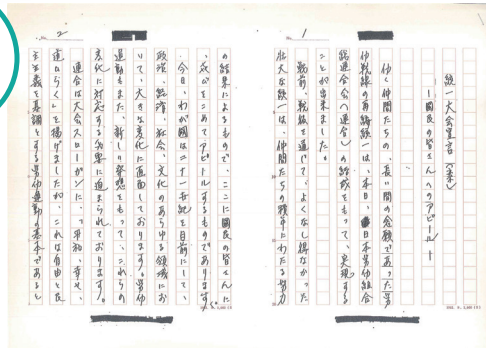 No. 1
統一大会宣言（案）
ー国民の皆さんへのアピールー
働く仲間たちの、長い間の念願であった労
働戦線の再編統一は、本日、日本労働組合
総連合会（連合）の結成をもって、実現する
ことが出来ました。
戦前、戦後を通じて、よくなし得なかった
壮大な統一は、仲間たちの積年にわたる努力
No. 2
の結果によるもので、ここに国民の皆さんに
、心をこめてアピールするものであります。
今日、わが国は二十一世紀を目前にして、
政治、経済、社会、文化のあらゆる領域にお
いて、大きな変化に直面しております。労働
運動もまた、新しい発想をもって、これらの
変化に対応する必要に迫まられております。
連合は大会スローガンに、「平和、幸せ、
道ひらく」を掲げましたが、これは自由と民
主主義を基調とする労働運動の基本であると